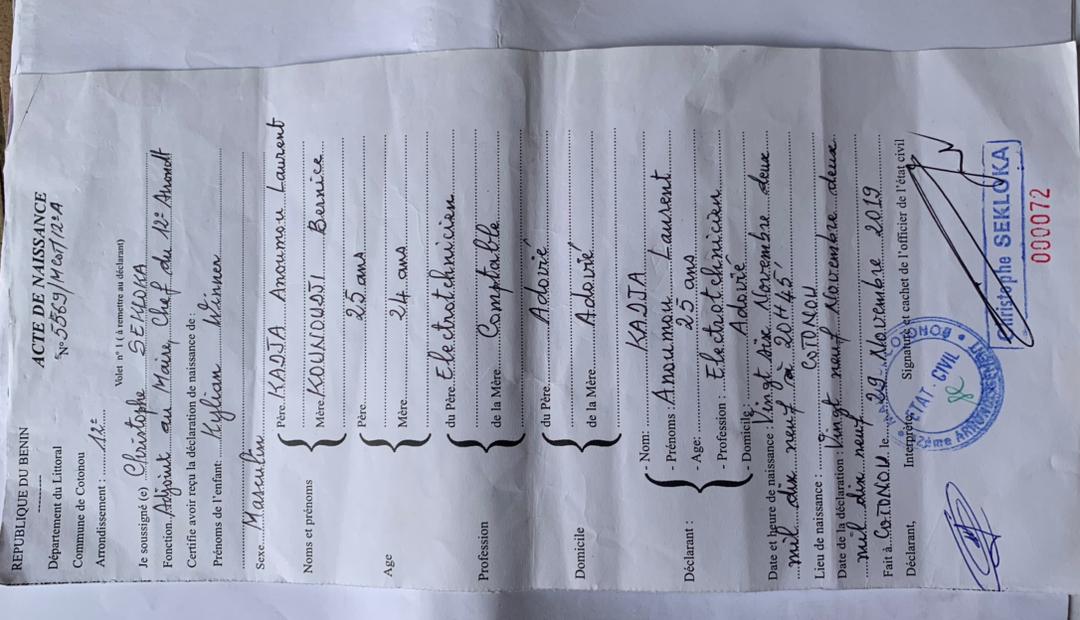 REPUBLIQUE DU BENIN
Département du Littoral
Commune de Cotonou
Arrondissement : 12e
ACTE DE NAISSANCE
N° 5569/MCOT/12e A
Volet n° 1 (à remettre au déclarant)
Je soussigné (e) Christophe SEKLOKA
Fonction Adjoint au Maire, Chef du 12e Arrondt
Certifie avoir reçu la déclaration de naissance de :
Prénoms de l'enfant: Kylian Winner
Sexe Masculin
Noms et prénoms
Père KADJA Anoumou Laurent
Mère KOUNOUDJI Bernice
Age
Père 25 ans
Mère 24 ans
Profession
du Père Electrotechnicien
de la Mère Comptable
Domicile
du Père Adovié
de la Mère Adovié
Déclarant :
- Nom: KADJA
- Prénoms : Anoumou Laurent
- Age: 25 ans
- Profession : Electrotechnicien
- Domicile: Adovié
Date et heure de naissance : Vingt six Novembre deux
mil dix neuf à 20H45'
Lieu de naissance : COTONOU
Date de la déclaration : Vingt neuf Novembre deux
mil dix neuf
Fait à COTONOU le 29 Novembre 2019
Déclarant, Interprète, Signature et cachet de l'officier de l'état civil
ETAT - CIVIL
Christophe SEKLOKA
000072